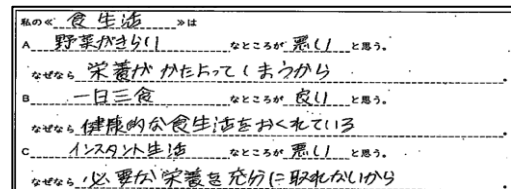 私の≪ 食生活 ≫は
A 野菜がきらい なところが 悪い と思う。
なぜなら 栄養がかたよってしまうから 。
B 一日三食 なところが 良い と思う。
なぜなら 健康的な食生活をおくれている 。
C インスタント生活 なところが 悪い と思う。
なぜなら 必要な栄養を充分に取れないから 。